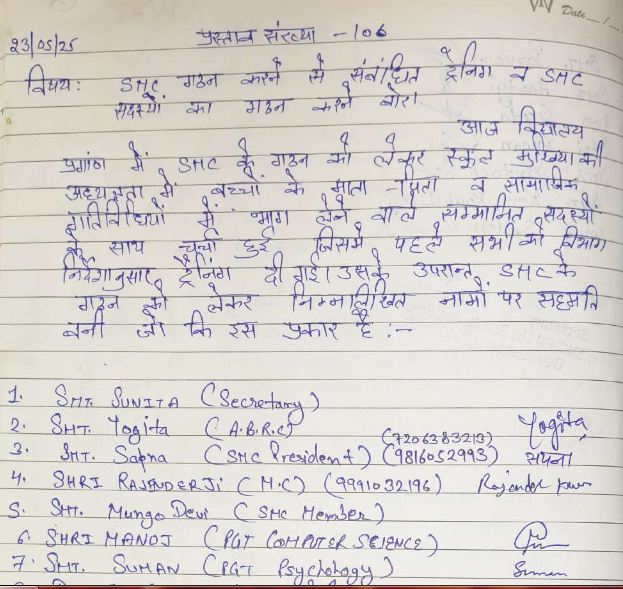 Date
23/05/25
प्रस्ताव संख्या - 106
विषय: SMC गठन करने से संबंधित ट्रेनिंग व SMC
सदस्यों का गठन करने बारे।
आज विद्यालय
प्रांगण में SMC के गठन को लेकर स्कूल मुखिया की
अध्यक्षता में बच्चों के माता-पिता व सामाजिक
गतिविधियों में भाग लेने वाले सम्मानित सदस्यों
के साथ चर्चा हुई जिसमें पहले सभी को विभाग
निर्देशानुसार ट्रैनिंग दी गई। उसके उपरान्त SMC के
गठन को लेकर निम्नलिखित नामों पर सहमति
बनी जो कि इस प्रकार है :-
1. SMT. SUNITA (Secretary)
2. SMT. Yogita (A.B.R.C) (7206383213) Yogita
3. SMT. Sapna (SMC President) (9816052993) सपना
4. SHRI RAJENDER Ji (M.C) (9991032196) Rajender
5. SMT. Mungo Devi (SMC Member)
6. SHRI MANOJ (PGT COMPUTER SCIENCE)
7. SMT. SUMAN (PGT Psychology) Suman